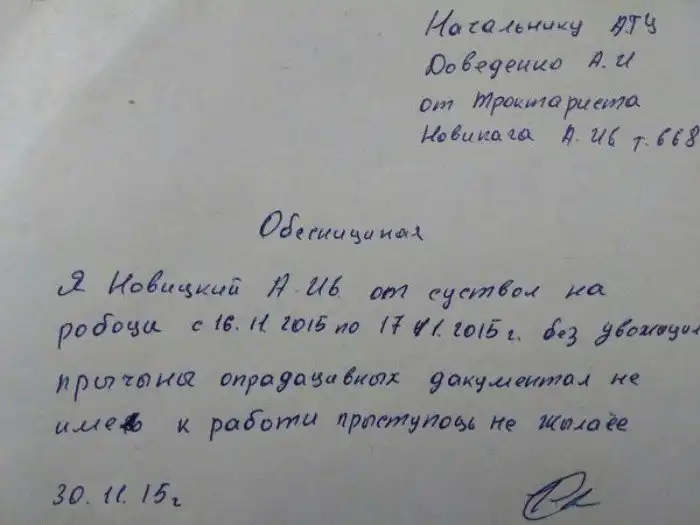 Начальнику АТЦ
Доведенко А.И
от трактариста
Новикага А.Ив т.668
Обеснициная
Я Новицкий А.Ив. от суствол на
робоци с 16.11 2015 по 17 11.2015 г. без увожицил
причыны опрадацивных дакументал не
имею к работи прыступоць не жылаёе
30.11.15г